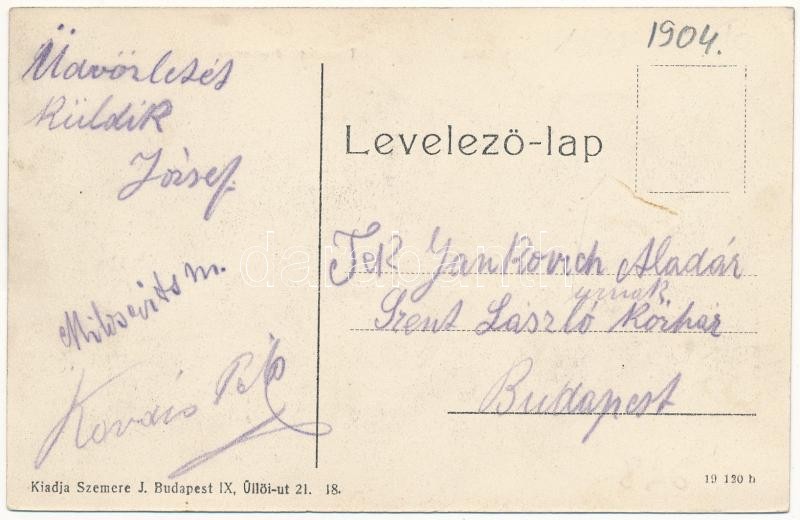 1904.
Üdvözletét
küldik
József.
Milosevits M.
Kovács
Levelező-lap
Tek Jankovich Aladár
urnak
Szent László Kórház
Budapest
Kiadja Szemere J. Budapest IX, Üllői-ut 21. 18.
19 120 h